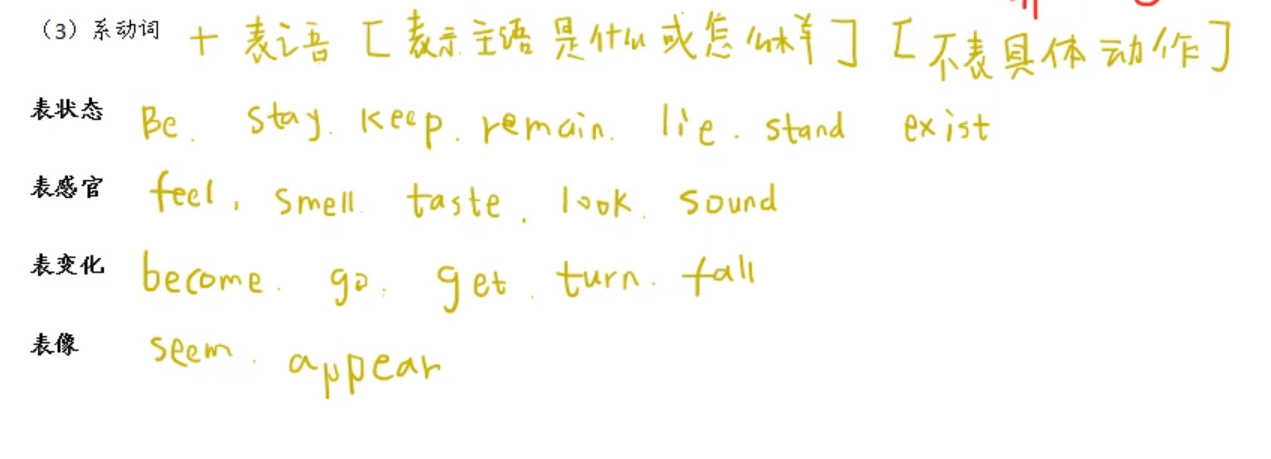 （3）系动词 + 表语 [表示主语是什么或怎么样] [不表具体动作]
表状态 Be. stay. keep. remain. lie. stand exist
表感官 feel, smell. taste. look. sound
表变化 become. go. get. turn. fall
表像 seem. appear